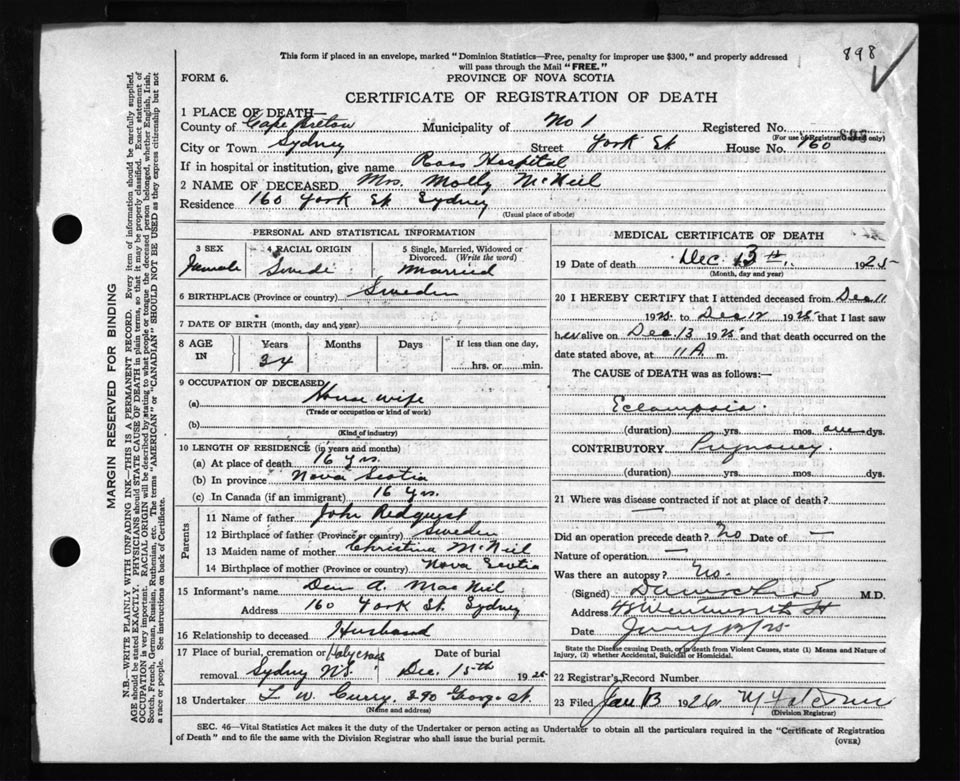 898
This form if placed in an envelope, marked "Dominion Statistics—Free, penalty for improper use $300," and properly addressed
will pass through the Mail "FREE."
FORM 6.
PROVINCE OF NOVA SCOTIA
CERTIFICATE OF REGISTRATION OF DEATH
1 PLACE OF DEATH—
County of Cape Breton Municipality of No 1 Registered No.
(For use of Registrar only)
City or Town Sydney Street York St House No. 160
If in hospital or institution, give name Ross Hospital
2 NAME OF DECEASED Mrs. Molly McNeil
Residence 160 York St Sydney
(Usual place of abode)
PERSONAL AND STATISTICAL INFORMATION
3 SEX 4 RACIAL ORIGIN 5 Single, Married, Widowed or
Divorced. (Write the word)
Female Swede Married
6 BIRTHPLACE (Province or country) Sweden
7 DATE OF BIRTH (month, day and year)
8 AGE IN Years Months Days If less than one day,
34 hrs. or min.
9 OCCUPATION OF DECEASED
(a) House wife
(Trade or occupation or kind of work)
(b)
(Kind of industry)
10 LENGTH OF RESIDENCE (in years and months)
(a) At place of death 16 yrs.
(b) In province Nova Scotia
(c) In Canada (if an immigrant) 16 Yrs.
Parents
11 Name of father John Redquist
12 Birthplace of father (Province or country) Sweden
13 Maiden name of mother Christina McNeil
14 Birthplace of mother (Province or country) Nova Scotia
15 Informant's name Dan A. MacNeil
Address 160 York St. Sydney
16 Relationship to deceased Husband
17 Place of burial, cremation or Holy Cross Date of burial
removal Sydney N.S. Dec. 15th 1925
18 Undertaker L. W. Curry. 290 George St.
(Name and address)
MEDICAL CERTIFICATE OF DEATH
19 Date of death Dec. 13th. 1925
(Month, day and year)
20 I HEREBY CERTIFY that I attended deceased from Dec 11
1925 to Dec 12 1925 that I last saw
her alive on Dec 13 1925 and that death occurred on the
date stated above, at 11 A m.
The CAUSE of DEATH was as follows:—
Eclampsia.
(duration) yrs. mos. one dys.
CONTRIBUTORY Pregnancy
(duration) yrs. mos. dys.
21 Where was disease contracted if not at place of death?
—
Did an operation precede death? No Date of —
Nature of operation —
Was there an autopsy? No.
(Signed) M.D.
Address St
Date
State the Disease causing Death, or in death from Violent Causes, state (1) Means and Nature of
Injury, (2) whether Accidental, Suicidal or Homicidal.
22 Registrar's Record Number
23 Filed Jan 13 1926
(Division Registrar)
SEC. 46—Vital Statistics Act makes it the duty of the Undertaker or person acting as Undertaker to obtain all the particulars required in the "Certificate of Registration
of Death" and to file the same with the Division Registrar who shall issue the burial permit.
(OVER)
MARGIN RESERVED FOR BINDING
N.B.—WRITE PLAINLY WITH UNFADING INK—THIS IS A PERMANENT RECORD. Every item of information should be carefully supplied.
AGE should be stated EXACTLY. PHYSICIANS should STATE CAUSE OF DEATH in plain terms, so that it may be properly classified. Exact statement of
OCCUPATION is very important. RACIAL ORIGIN will be described by stating to what people or tongue the deceased person belonged, whether English, Irish,
Scotch, French, German, Russian, Ruthenian, etc. The terms "AMERICAN" or "CANADIAN" SHOULD NOT BE USED as they express citizenship but not
a race or people. See instructions on back of Certificate.